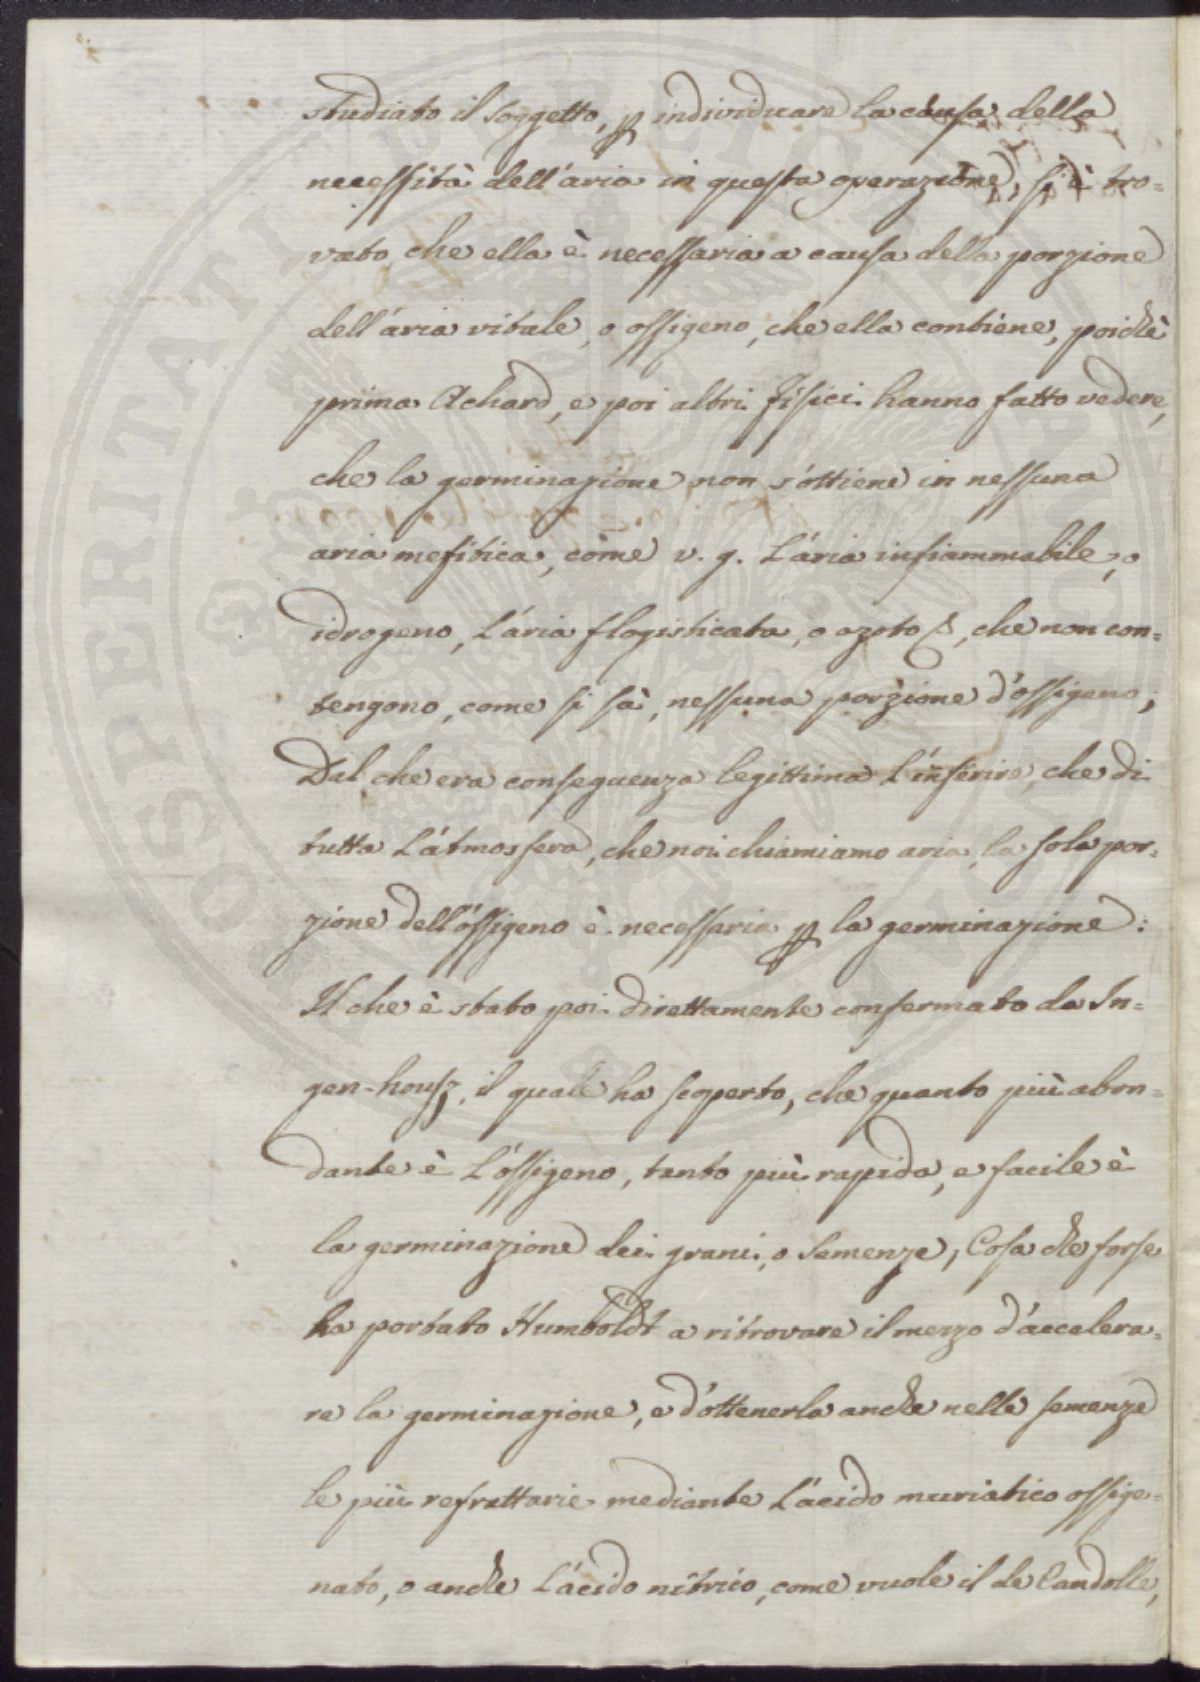 studiato il soggetto, ꝑ individuare la causa della
necessità dell'aria in questa operazione, si è tro=
vato, che ella è necessaria a causa della porzione
dell'aria vitale, o ossigeno, che ella contiene, poichè
prima Achard, e poi altri Fisici hanno fatto vedere,
che la germinazione non s'ottiene in nessuna
aria mefitica, come v. g. L'aria infiammabile, o
idrogeno, L'aria flogisticata, o azoto, che non con=
tengono, come si sà, nessuna porzione d'ossigeno;
Dal che era conseguenza legittima L'inferire, che di
tutta L'atmosfera, che noi chiamiamo aria, la sola por=
zione dell'ossigeno è necessaria ꝑ la germinazione:
Il che è stato poi direttamente confermato da In=
gen-housz, il quale ha scoperto, che quanto più abon=
dante è L'ossigeno, tanto più rapida, e facile è
la germinazione dei grani, o semenze, Cosa che forse
ha portato Humboldt a ritrovare il mezzo d'accelera=
re la germinazione, e d'ottenerla anche nelle semenze
le più refrattarie mediante L'acido muriatico ossige=
nato, o anche L'acido nitrico, come vuole il de Candolle,
PROSPERITATI PUBLICAE AUGENDAE